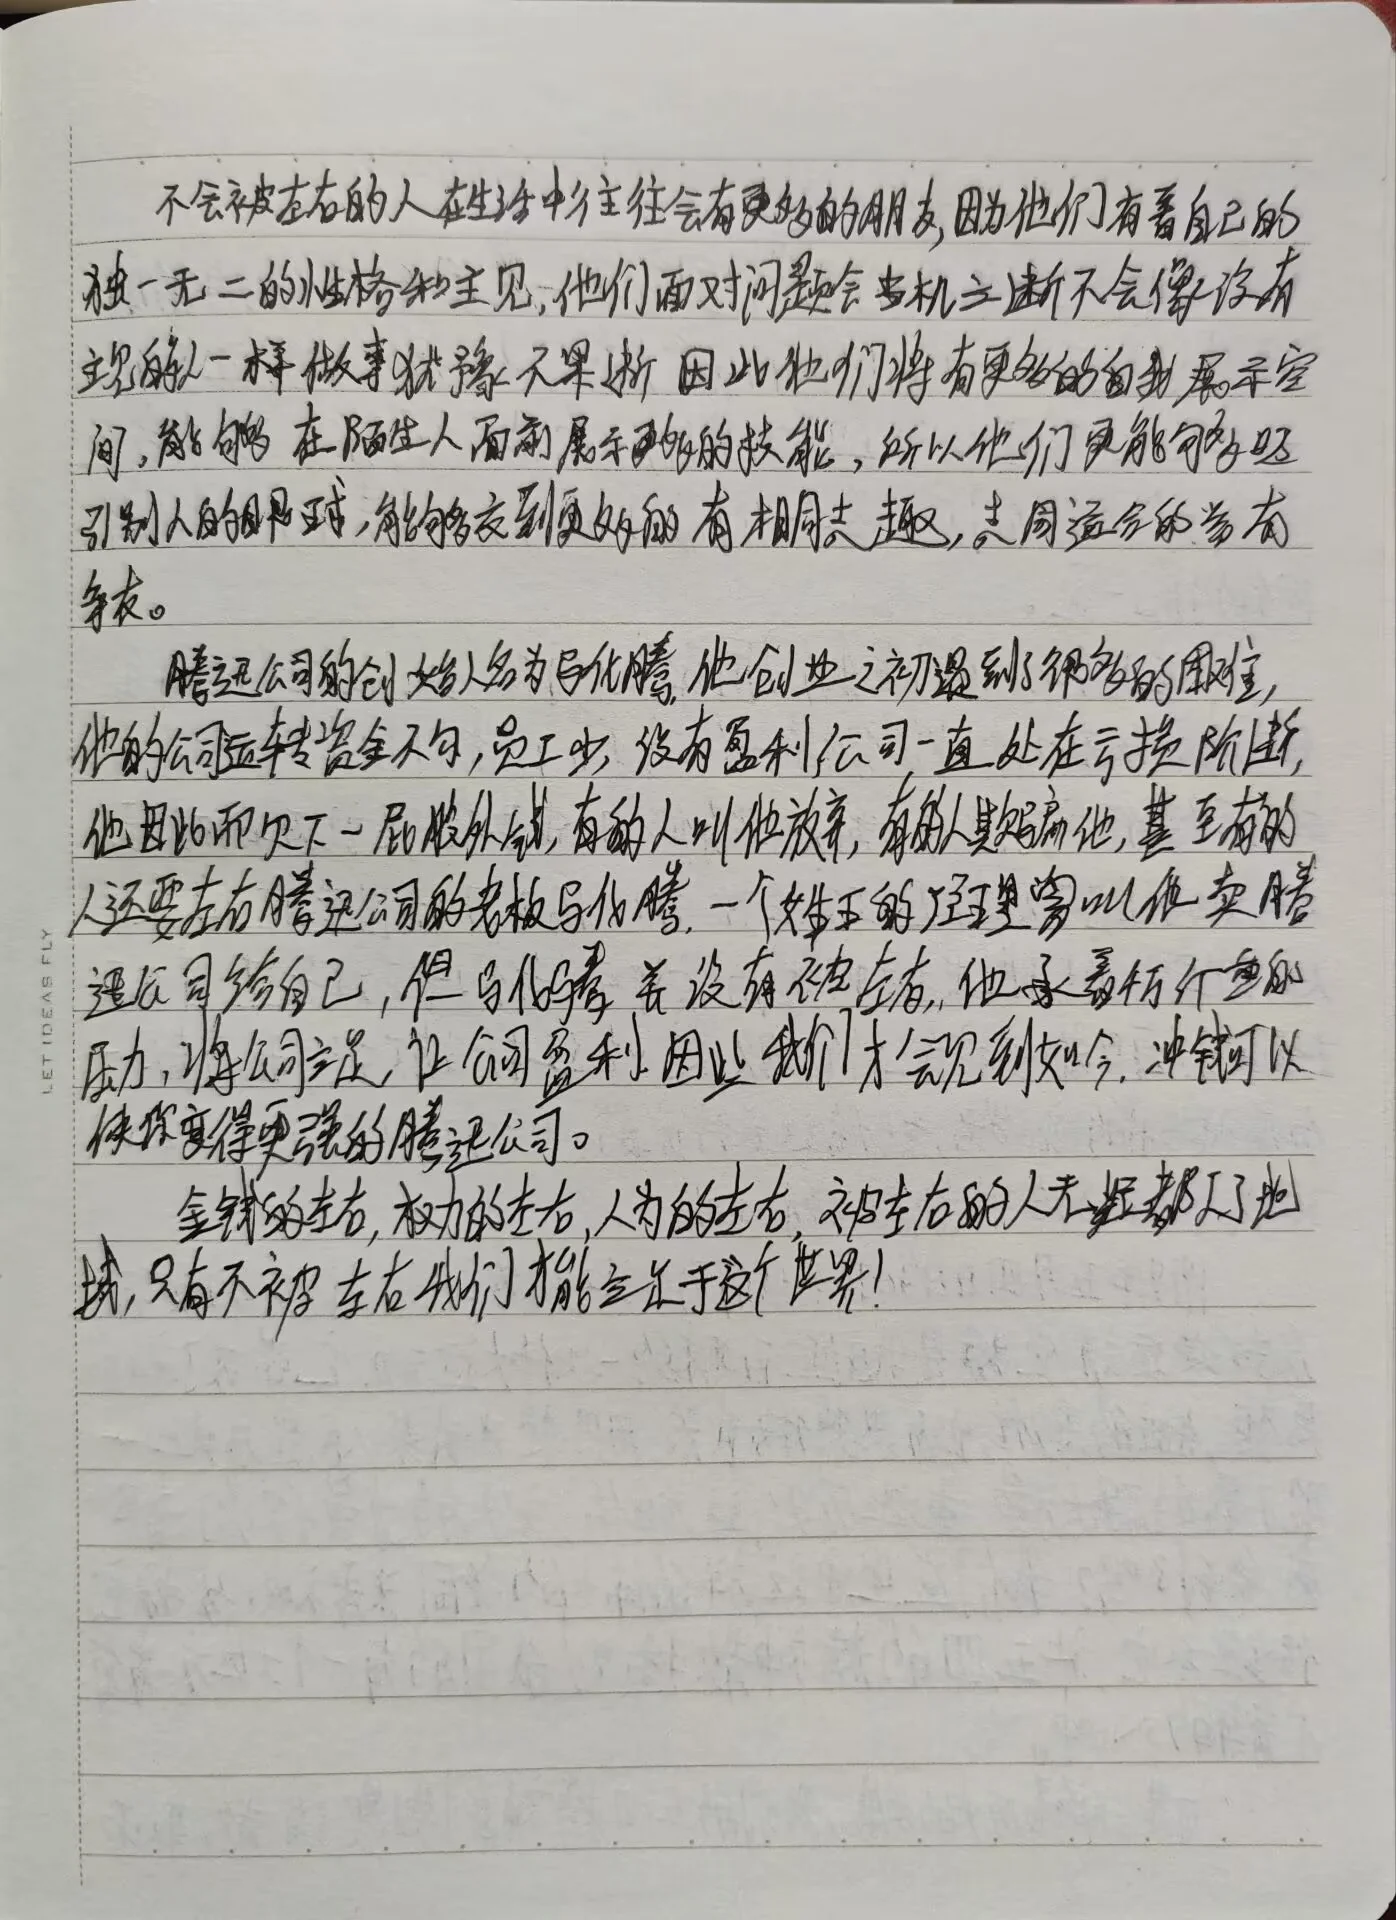 不会被左右的人在生活中往往会有更多的朋友,因为他们有着自己的
独一无二的性格和主见,他们面对问题会当机立断不会像没有
主见的人一样做事犹豫不果断 因此他们将有更多的自我展示空
间,能够在陌生人面前展示更多的技能,所以他们更能够吸
引别人的眼球,能够交到更多的有相同志趣,志同道合的
友。
腾迅公司的创始人名为马化腾,他创业之初遇到了很多的困难,
他的公司运转资金不够,员工少,没有盈利,公司一直处在亏损阶断,
他因此而欠下一屁股外钱,有的人叫他放弃,有的人欺骗他,甚至有的
人还要左右腾迅公司的老板马化腾,一个姓王的经理尝叫他卖腾
迅公司给自己,但马化腾并没有被左右,他承着的
压力,将公司立足,让公司盈利,因此我们才会见到如今,冲钱可以
使你变得更强的腾迅公司。
金钱的左右,权力的左右,人为的左右,被左右的人无都入了地
域,只有不被左右我们才能立足于这个世界!
LET IDEAS FLY